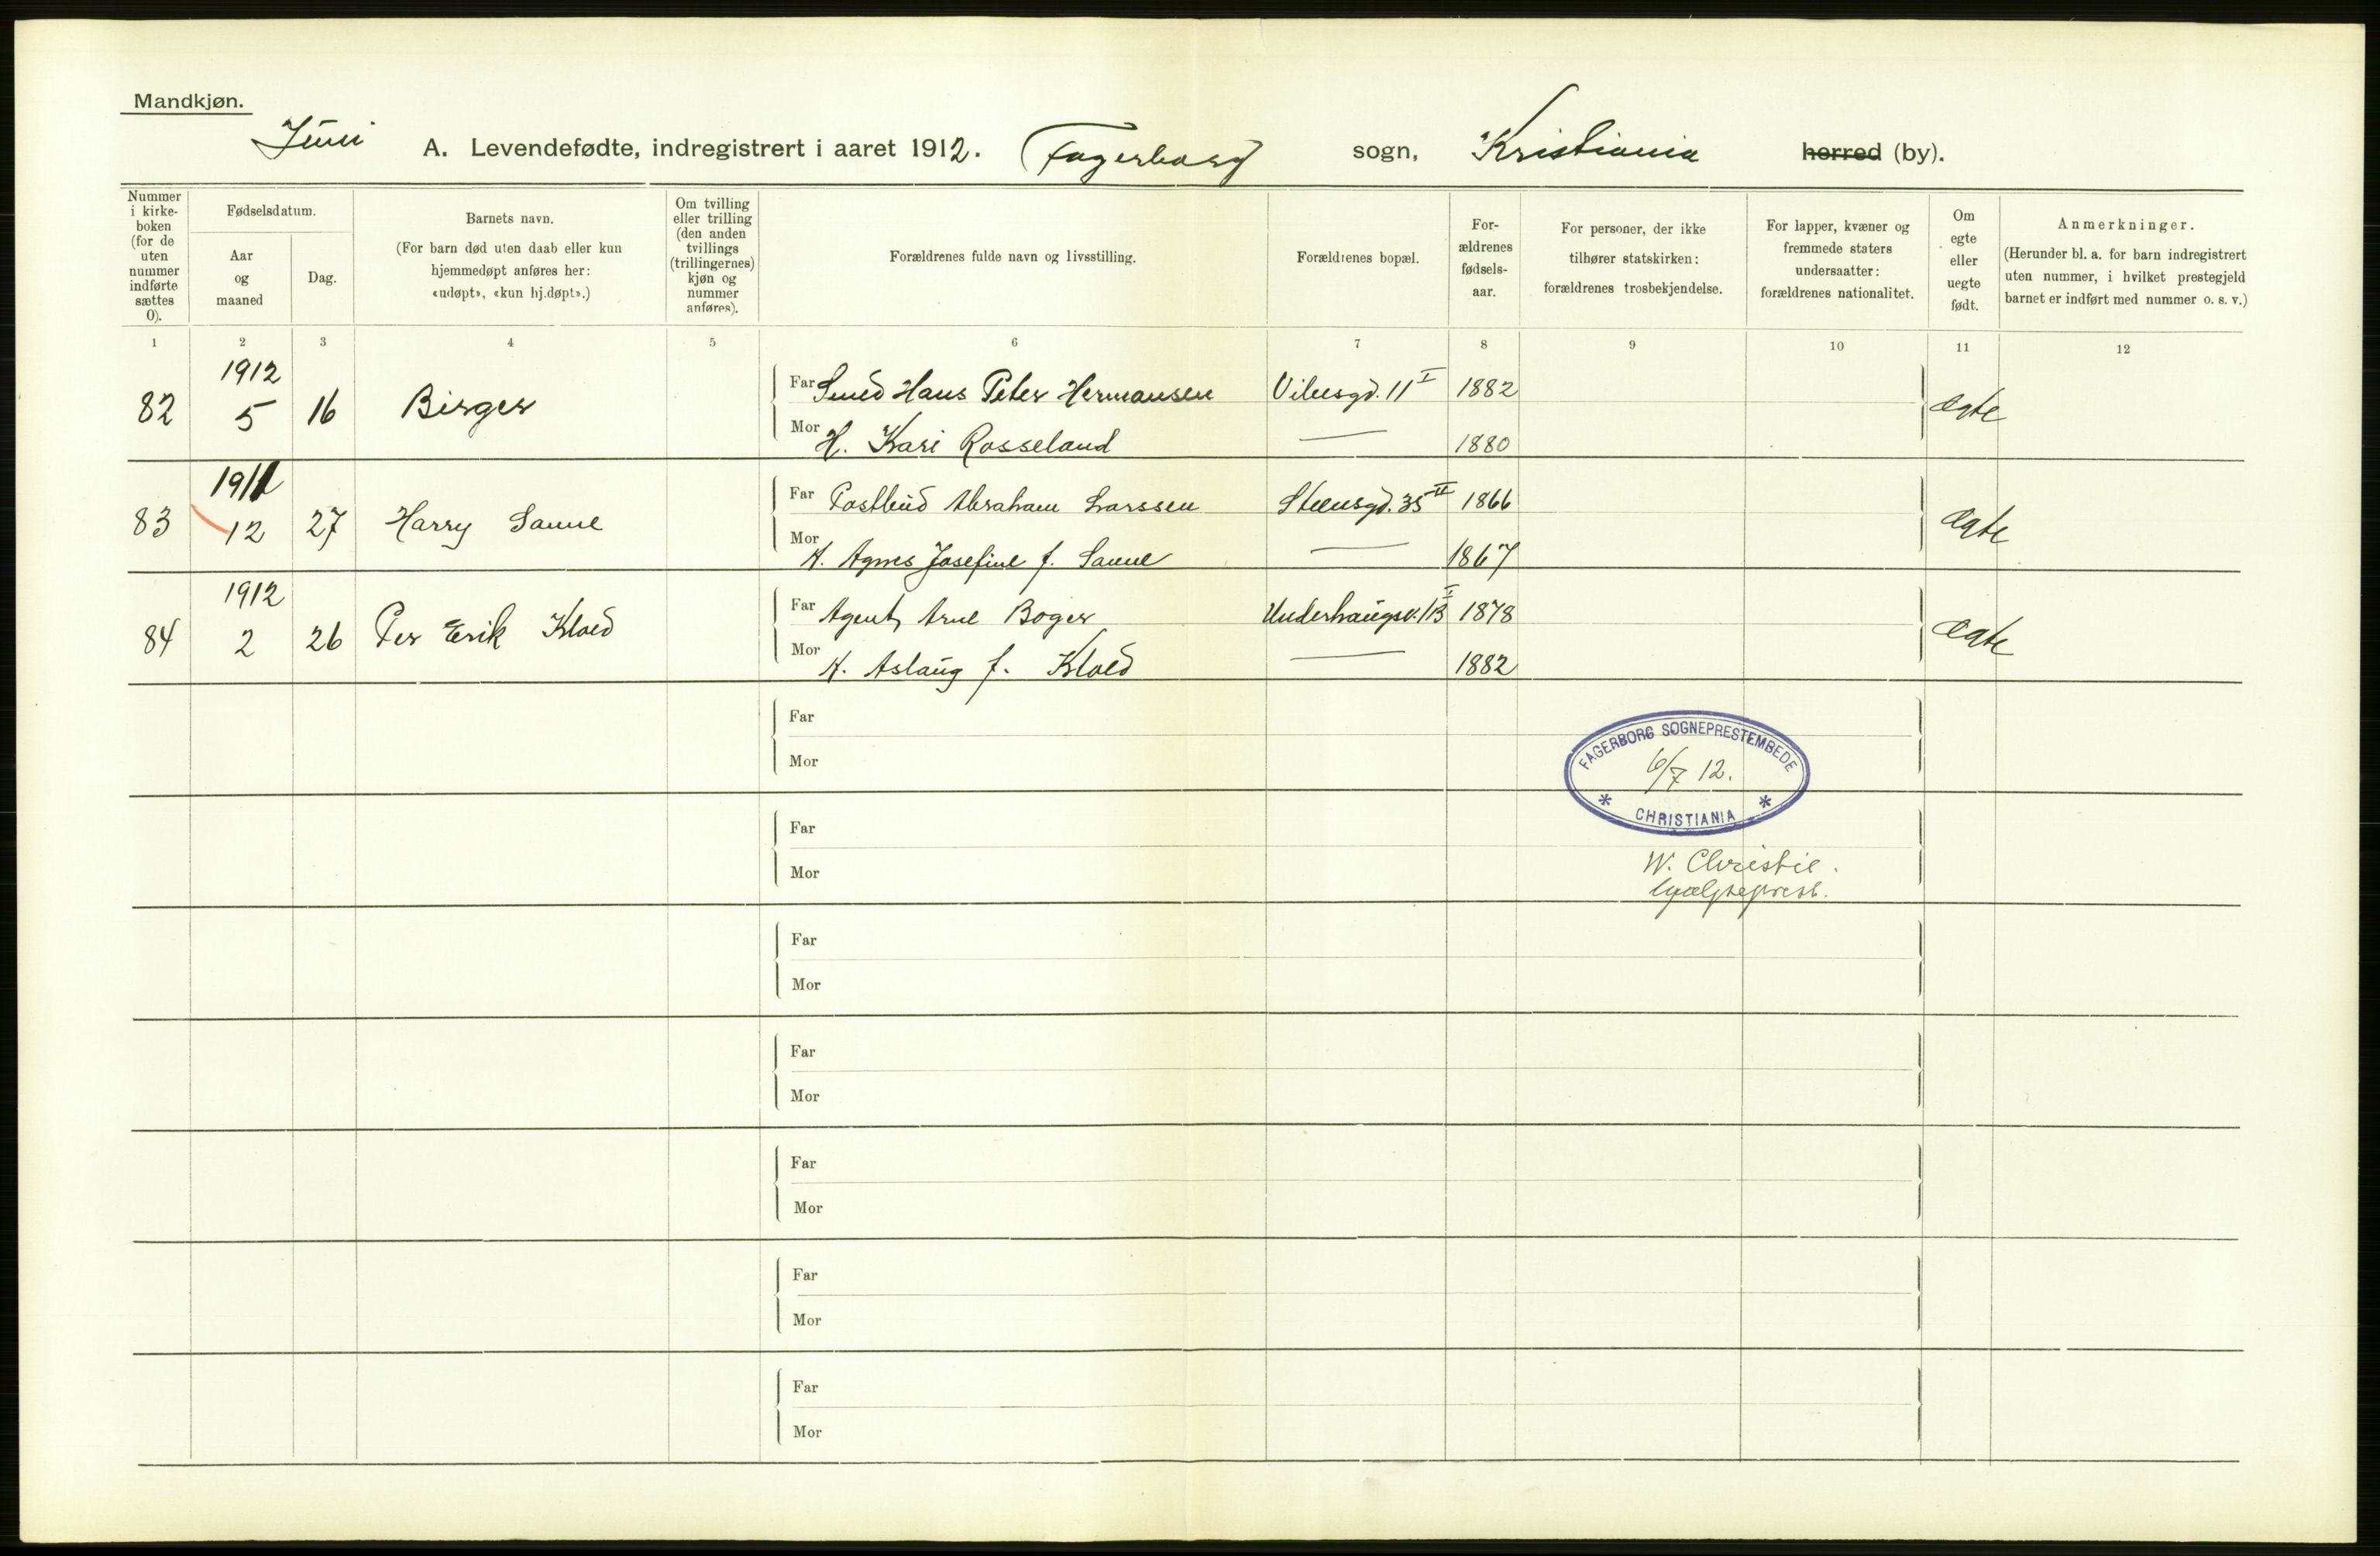 Mandkjøn.
Juni A. Levendefødte, indregistrert i aaret 1912. Fagerborg sogn, Kristiania herred (by).
Nummer i kirke-boken (for de uten nummer indførte sættes 0).
Fødselsdatum.
Aar og maaned
Dag.
Barnets navn.
(For barn død uten daab eller kun hjemmedøpt anføres her: «udøpt», «kun hj.døpt».)
Om tvilling eller trilling (den anden tvillings (trillingernes) kjøn og nummer anføres).
Forældrenes fulde navn og livsstilling.
Forældrenes bopæl.
For-ældrenes fødsels-aar.
For personer, der ikke tilhører statskirken: forældrenes trosbekjendelse.
For lapper, kvæner og fremmede staters undersaatter: forældrenes nationalitet.
Om egte eller uegte født.
Anmerkninger.
(Herunder bl. a. for barn indregistrert uten nummer, i hvilket prestegjeld barnet er indført med nummer o. s. v.)
1 2 3 4 5 6 7 8 9 10 11 12
82 1912 5 16 Birger Far Smed Hans Peter Hermansen Vibesgd. 11 I 1882 ægte
Mor H. Kari Rosseland — 1880
83 1911 12 27 Harry Sanne Far Postbud Abraham Larssen Steensgd. 35 II 1866 ægte
Mor H. Agnes Josefine f. Sanne — 1867
84 1912 2 26 Per Erik Kloed Far Agent Arne Boger Underhaugsv. 1B I 1878 ægte
Mor H. Aslaug f. Kloed — 1882
Far
FAGERBORG SOGNEPRESTEMBEDE
6/7 12.
CHRISTIANIA
Mor
Far
W. Christie.
Mor
hjælpeprest.
Far
Mor
Far
Mor
Far
Mor
Far
Mor
Far
Mor